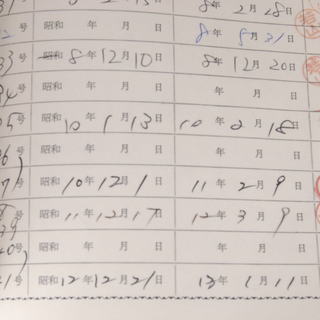 8年2月28日
号 昭和 年 月 日 8年8月31日
33号 昭和8年12月10日 8年12月20日
34号 昭和 年 月 日 年 月 日
35号 昭和10年1月13日 10年2月18日
36号 昭和 年 月 日 年 月 日
37号 昭和10年12月1日 11年2月9日
号 昭和11年12月17日 12年3月9日
39号 昭和 年 月 日 年 月 日
40号 昭和 年 月 日 年 月 日
41号 昭和12年12月21日 13年1月11日